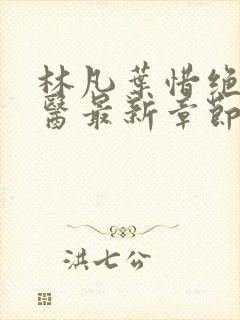 林凡葉惜绝
醫最新章節
洪七公